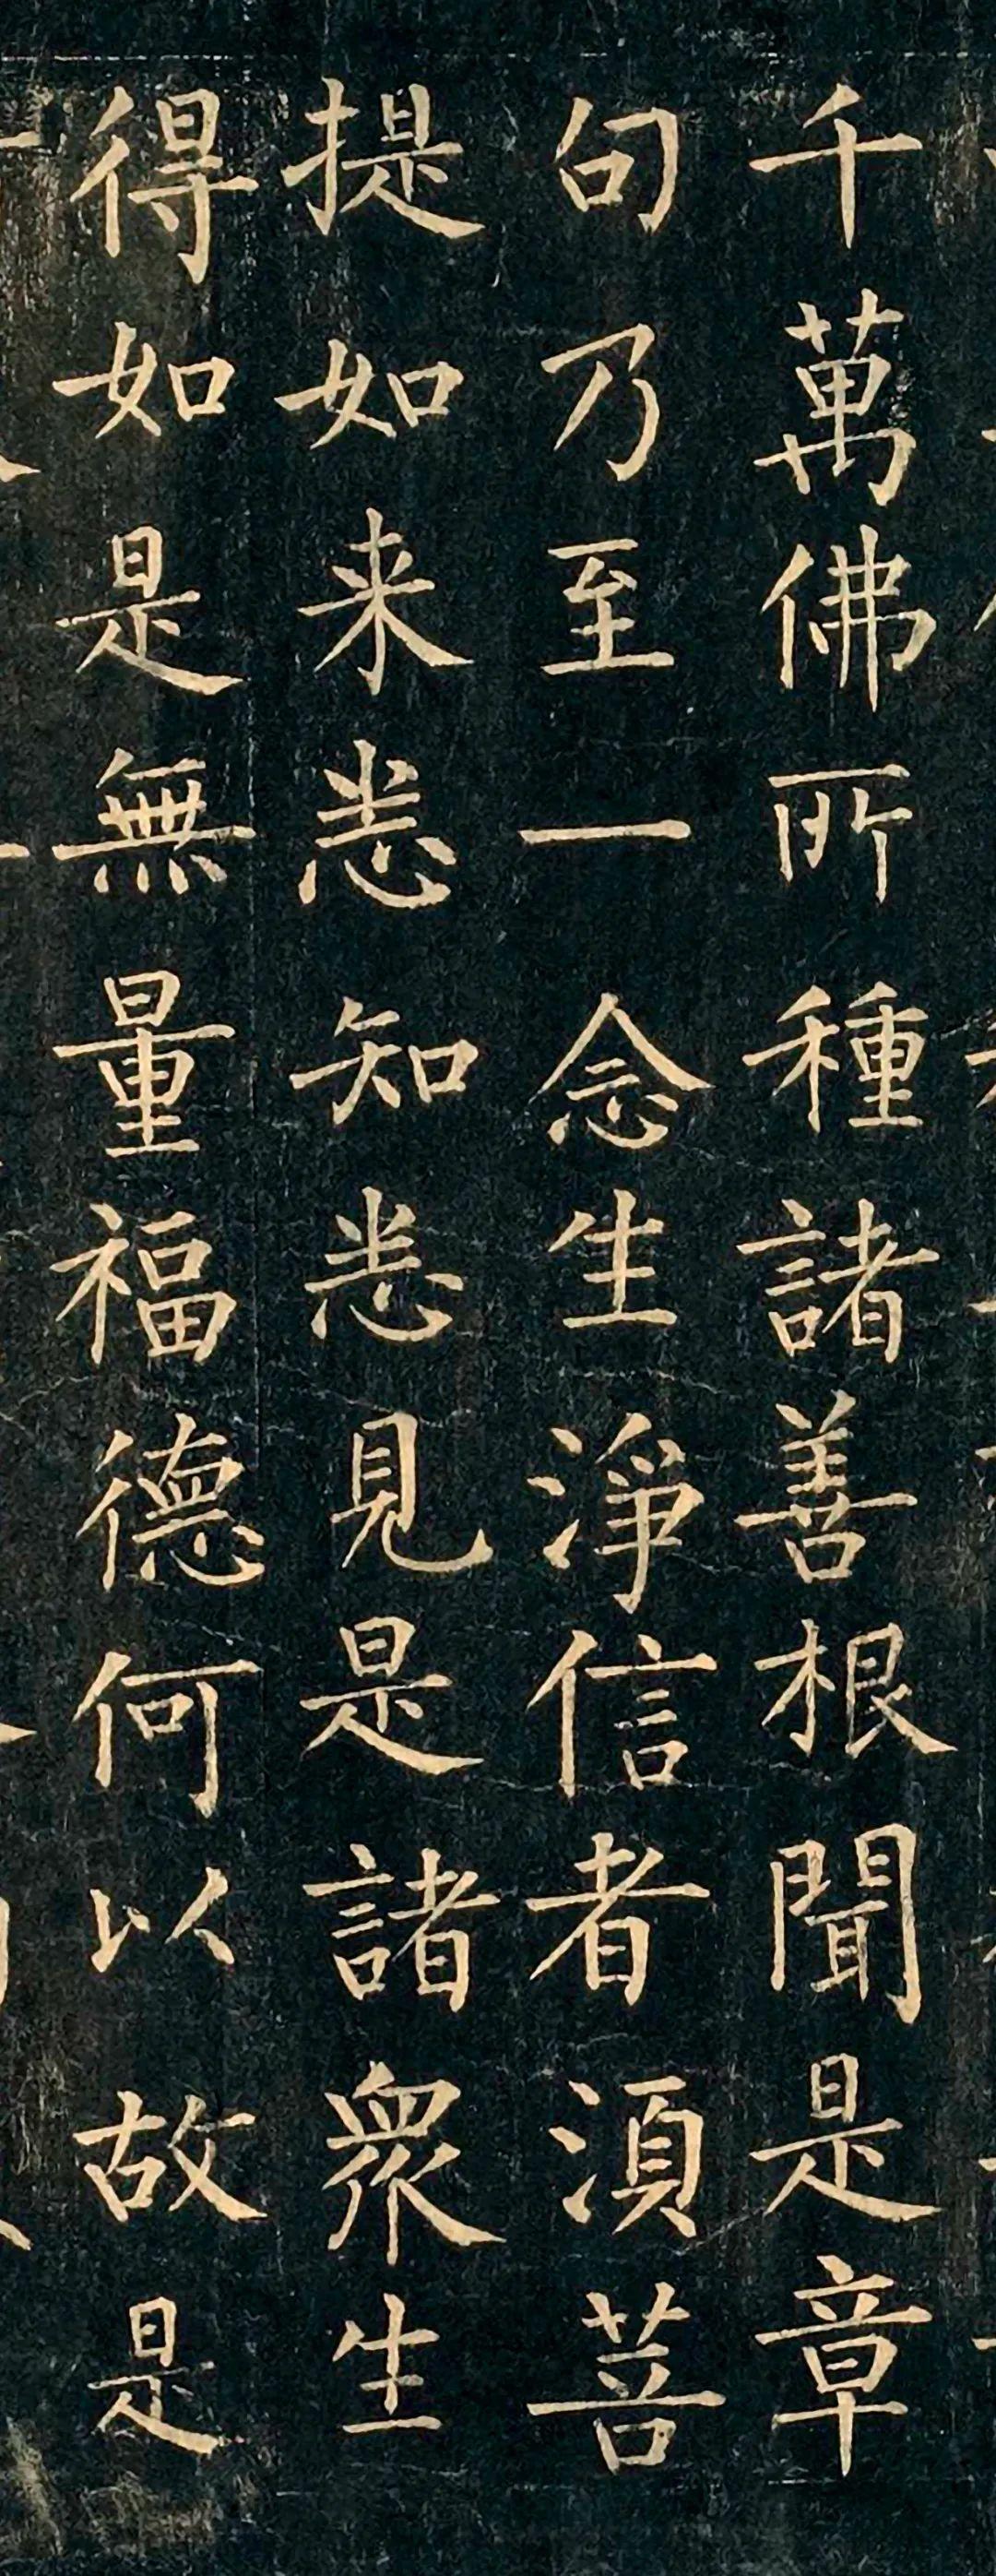 千萬佛所種諸善根聞是章
句乃至一念生淨信者須菩
提如来悉知悉見是諸衆生
得如是無量福德何以故是